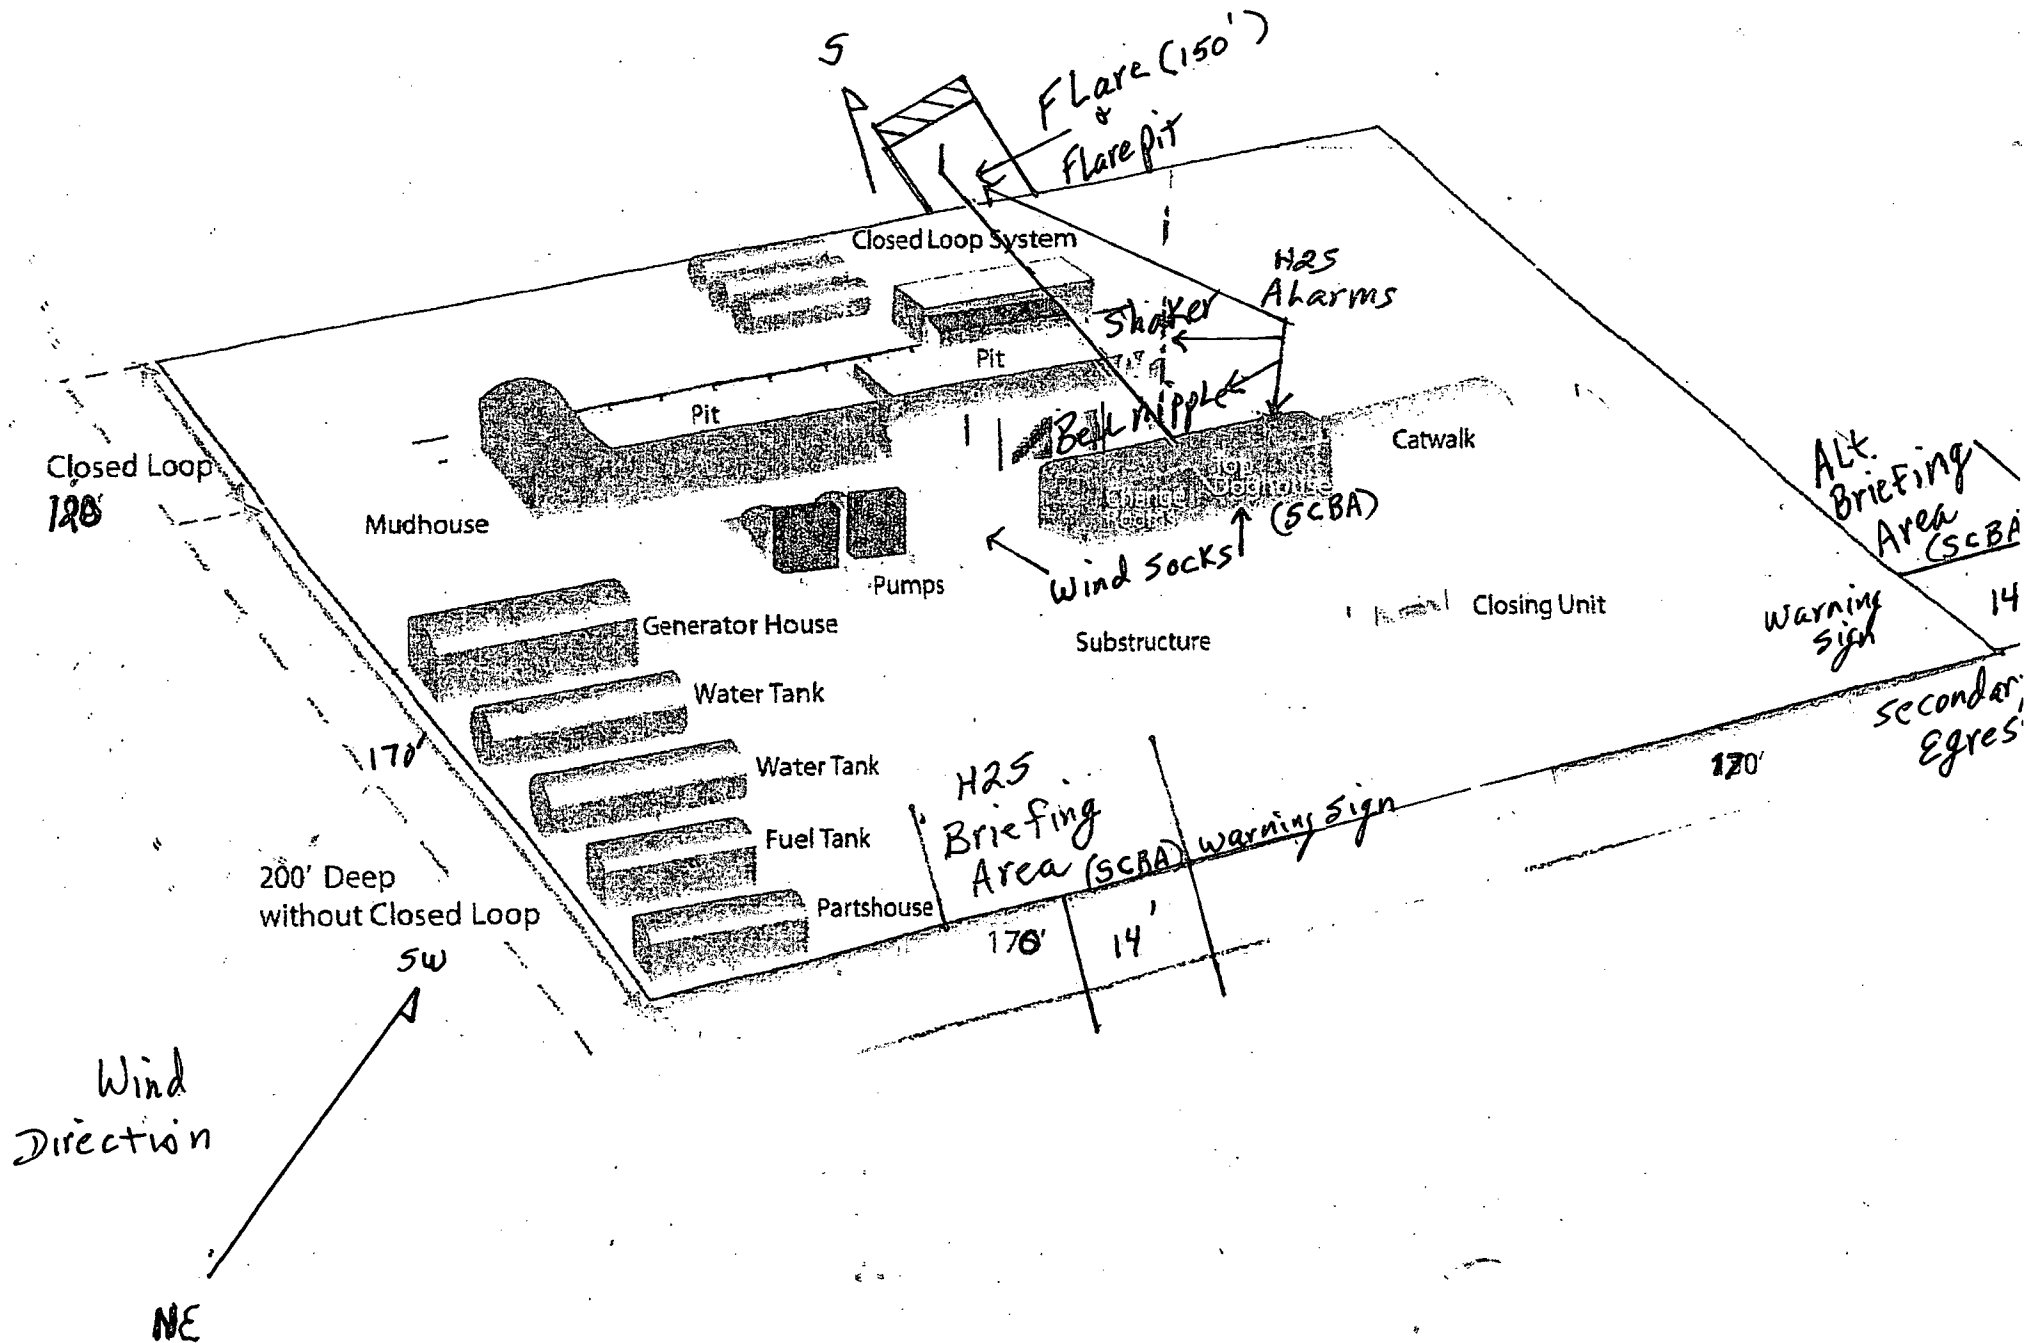 S
FLare (150')
&
Flare pit
Closed Loop System
H2S
ALarms
Shaker
Pit
Pit
Bell nipple
Catwalk
Closed Loop
Mudhouse
Top
Change
Doghouse
(SCBA)
Wind Socks
Pumps
ALt.
Briefing
Area
(SCBA
14
Generator House
Substructure
Closing Unit
Warning
Sign
Water Tank
Secondar
Egres
170'
Water Tank
H2S
Briefing
Area (SCBA) Warning Sign
Fuel Tank
200' Deep
without Closed Loop
Partshouse
170'
14'
SW
Wind
Direction
NE